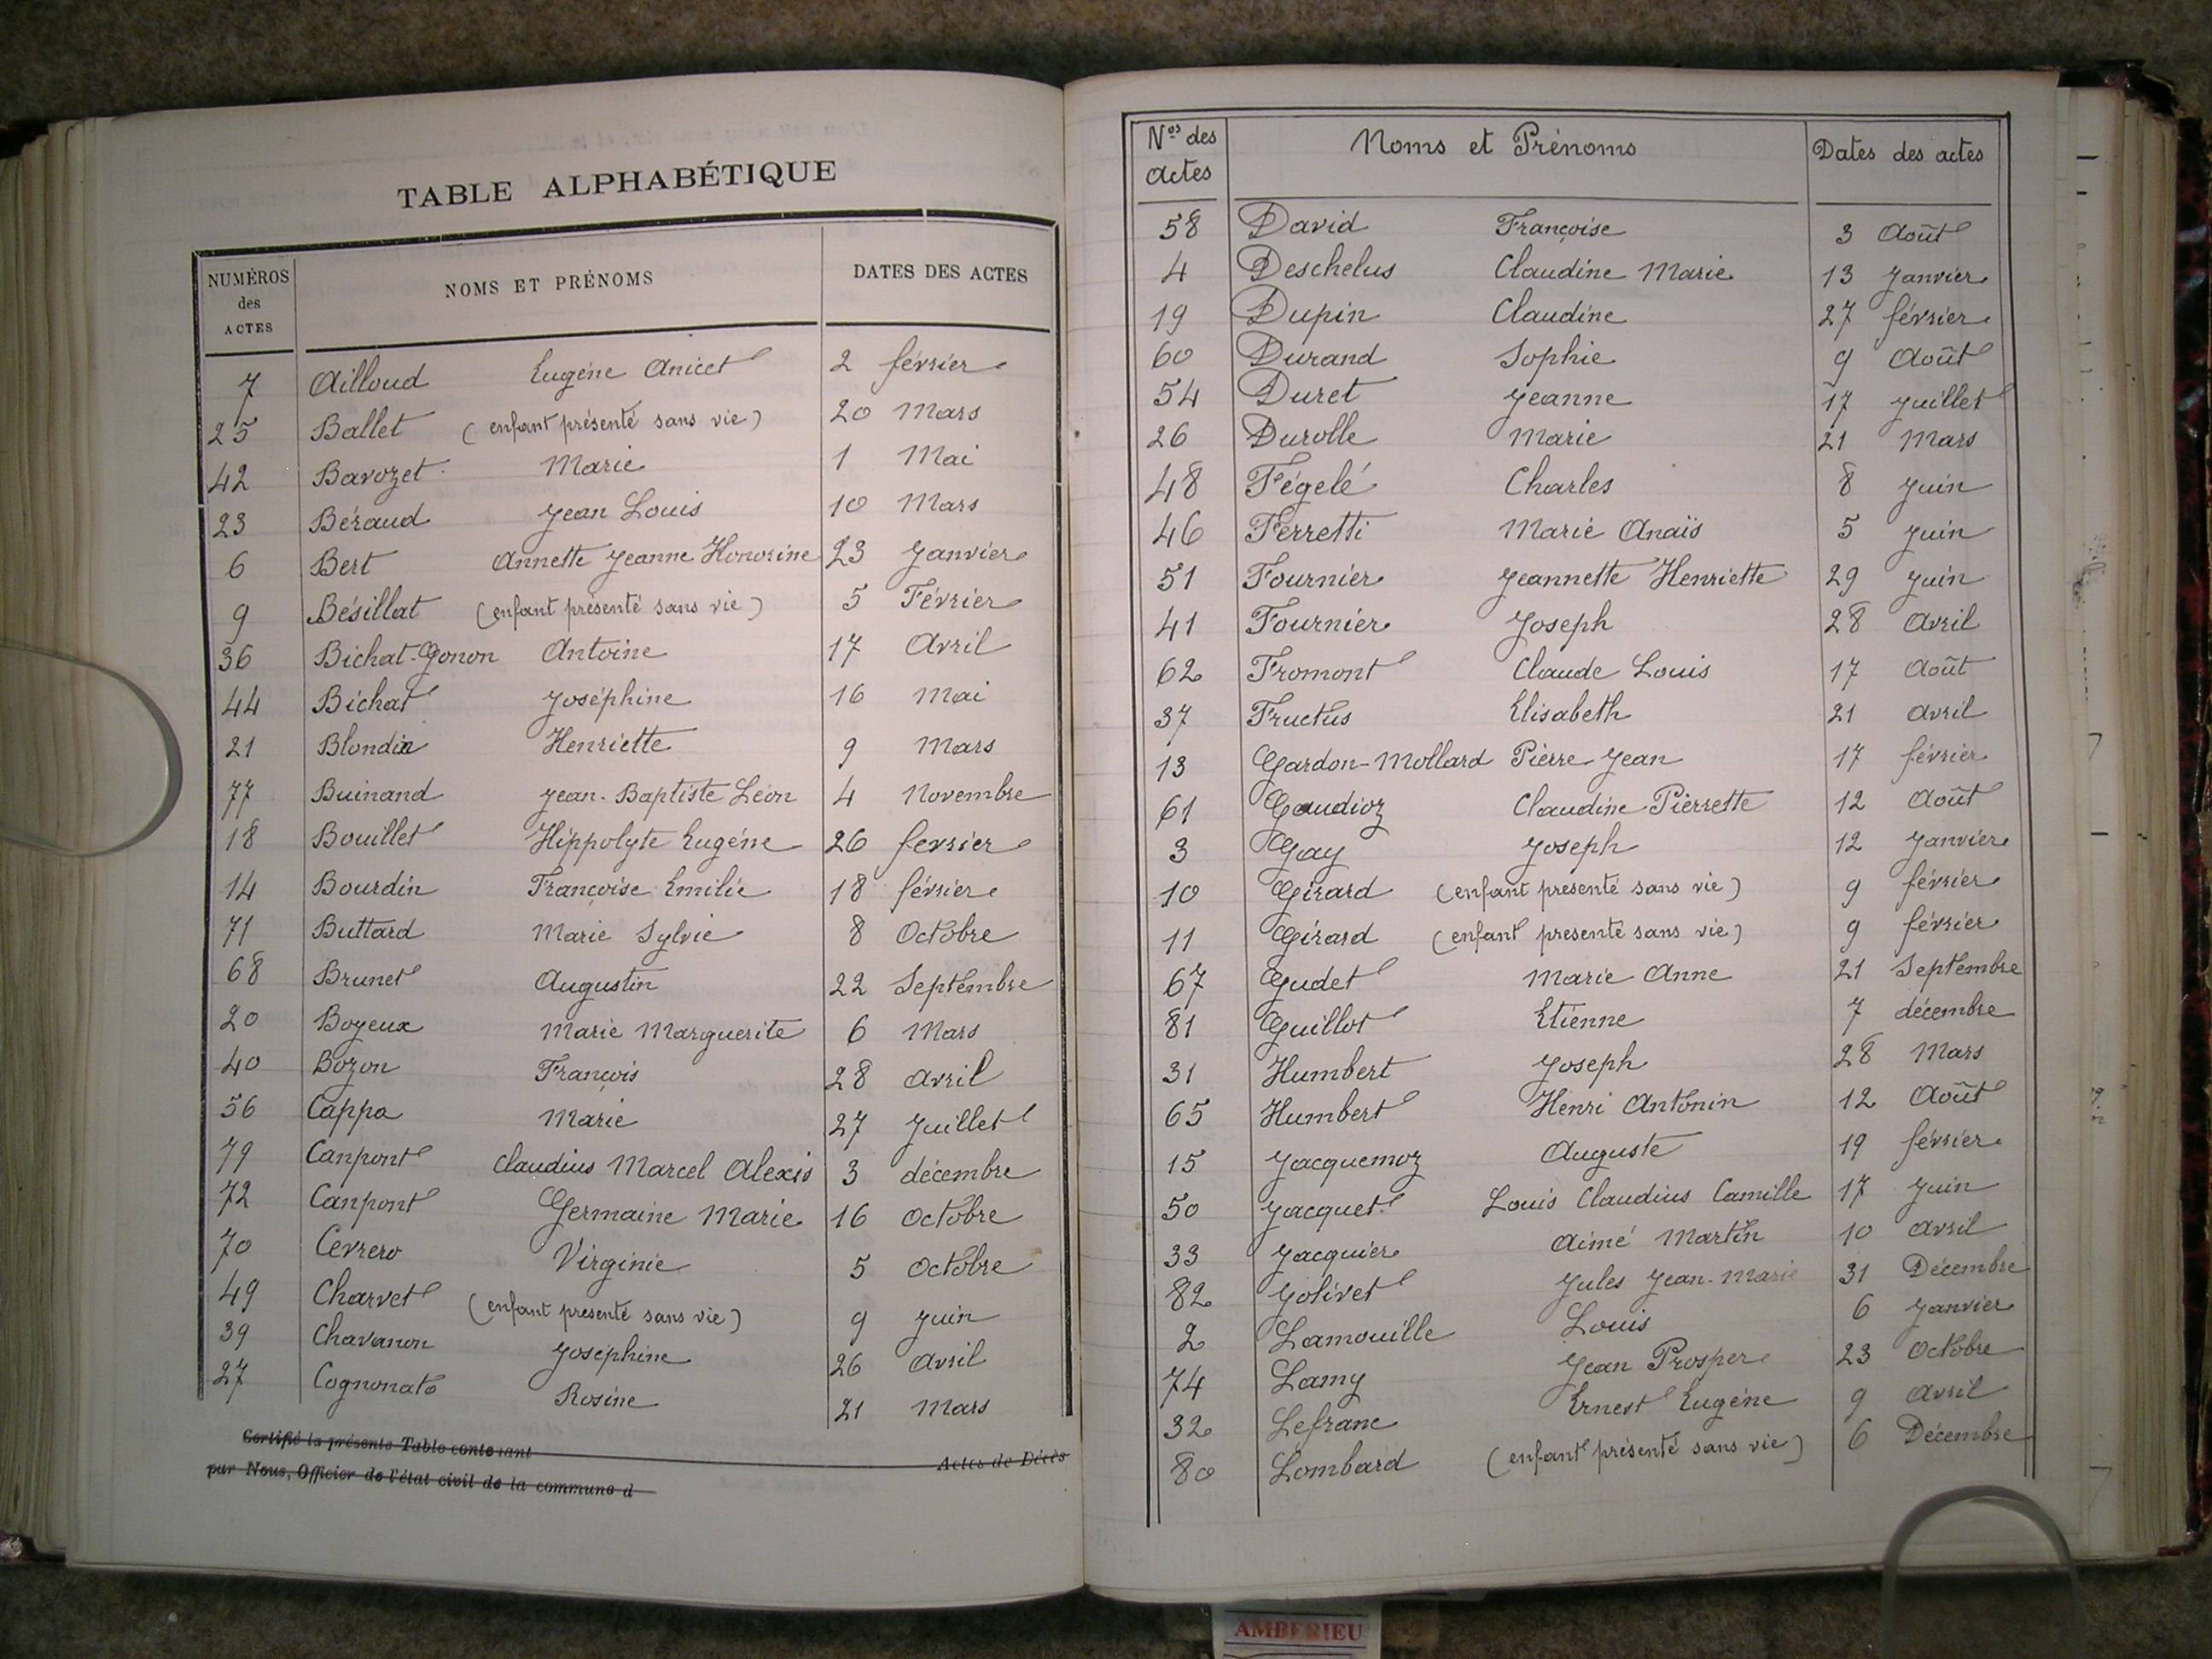 TABLE ALPHABÉTIQUE
NUMÉROS des ACTES NOMS ET PRÉNOMS DATES DES ACTES
7 Ailloud Eugène Anicet 2 février
25 Ballet (enfant présenté sans vie) 20 Mars
42 Bavozet Marie 1 Mai
23 Béraud Jean Louis 10 Mars
6 Bert Annette Jeanne Honorine 23 Janvier
9 Bésillat (enfant présenté sans vie) 5 Février
36 Bichat-Gonon Antoine 17 Avril
44 Bichat Joséphine 16 Mai
21 Blondin Henriette 9 Mars
77 Buinand Jean-Baptiste Léon 4 Novembre
18 Bouillet Hippolyte Eugène 26 fevrier
14 Bourdin Françoise Emilie 18 février
71 Buttard Marie Sylvie 8 Octobre
68 Brunet Augustin 22 Septembre
20 Boyeux Marie Marguerite 6 Mars
40 Bozon François 28 Avril
56 Cappa Marie 27 Juillet
79 Canpont Claudius Marcel Alexis 3 décembre
72 Canpont Germaine Marie 16 Octobre
70 Cevrero Virginie 5 Octobre
49 Charvet (enfant présenté sans vie) 9 Juin
39 Chavanon Joséphine 26 Avril
27 Cognonato Rosine 21 Mars
Certifié la présente Table contenant Actes de Décès
par Nous, Officier de l'état civil de la commune d
Nos des actes Noms et Prénoms Dates des actes
58 David Françoise 3 Août
4 Deschelus Claudine Marie 13 Janvier
19 Dupin Claudine 27 février
60 Durand Sophie 9 Août
54 Duret Jeanne 17 Juillet
26 Durolle Marie 21 Mars
48 Fégelé Charles 8 Juin
46 Ferretti Marie Anaïs 5 Juin
51 Fournier Jeannette Henriette 29 Juin
41 Fournier Joseph 28 Avril
62 Fromont Claude Louis 17 Août
37 Fructus Elisabeth 21 Avril
13 Gardon-Mollard Pierre Jean 17 février
61 Gaudioz Claudine Pierrette 12 Août
3 Gay Joseph 12 Janvier
10 Girard (enfant présenté sans vie) 9 février
11 Girard (enfant présenté sans vie) 9 février
67 Gudet Marie Anne 21 Septembre
81 Guillot Etienne 7 décembre
31 Humbert Joseph 28 Mars
65 Humbert Henri Antonin 12 Août
15 Jacquemoz Auguste 19 février
50 Jacquet Louis Claudius Camille 17 Juin
33 Jacquier Aimé Martin 10 Avril
82 Jolivet Jules Jean-Marie 31 Décembre
2 Lamouille Louis 6 Janvier
74 Lamy Jean Prosper 23 Octobre
32 Lefranc Ernest Eugène 9 Avril
80 Lombard (enfant présenté sans vie) 6 Décembre
AMBERIEU